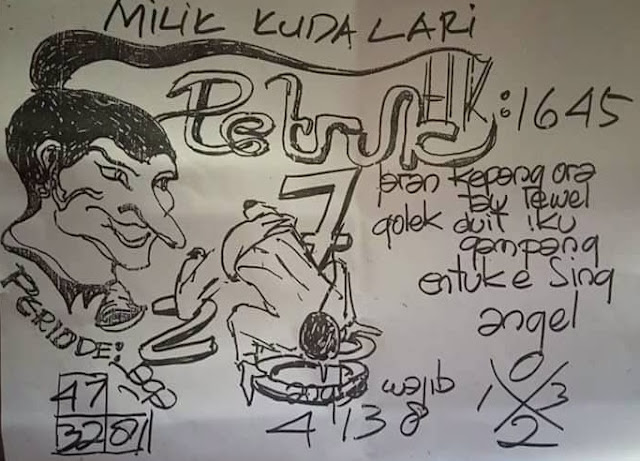 MILIK KUDALARI
Petruk
HK:1645
7
jaran kepang ora
tau rewel
golek duit iku
gampang
entuke sing
angel
PERIODE:
2
47
32 01
angka wajib
4 13 8
0
1 3
2